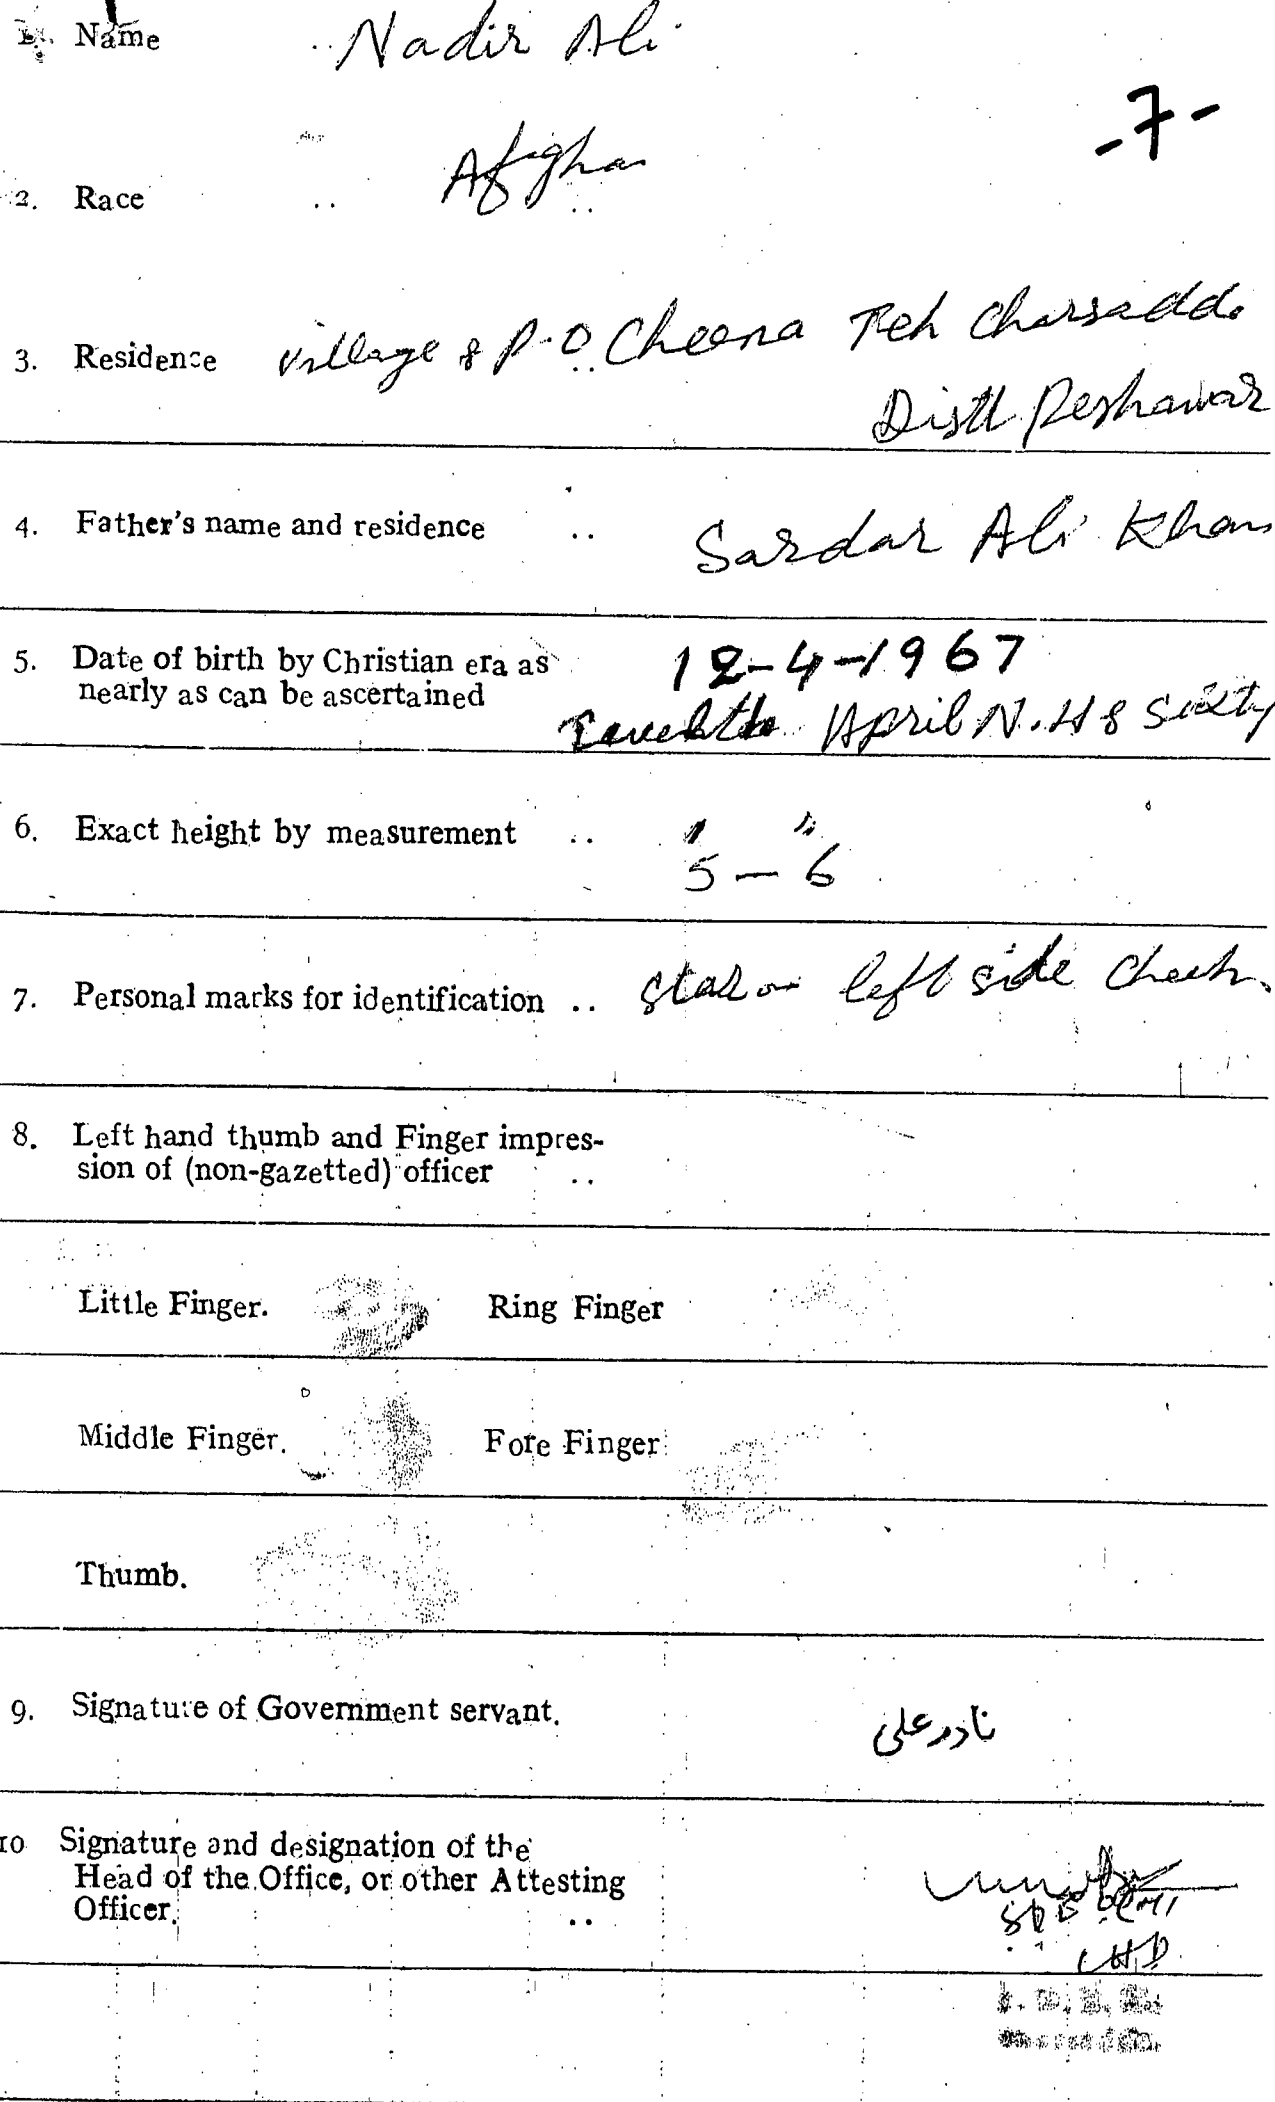 Name .. Nadir Ali
-7-
2. Race .. Afghan
3. Residence village & P.O Cheena Teh Charsadda
Distt Peshawar
4. Father's name and residence .. Sardar Ali Khan
5. Date of birth by Christian era as 12-4-1967
nearly as can be ascertained April N.H & Sixty
6. Exact height by measurement .. 5'-6"
7. Personal marks for identification .. left side cheek.
8. Left hand thumb and Finger impres-
sion of (non-gazetted) officer ..
Little Finger. Ring Finger
Middle Finger. Fore Finger
Thumb.
9. Signature of Government servant. نادر علی
10 Signature and designation of the
Head of the Office, or other Attesting
Officer. ..